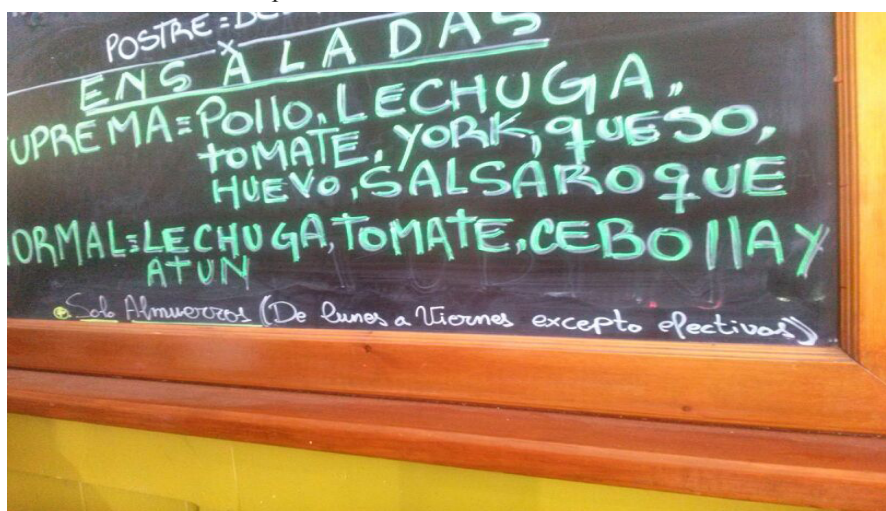 POSTRE=
ENSALADAS
UPREMA=Pollo, LECHUGA,
tOMATE, YORK, qUESO,
HUEVO, SALSA ROqUE
ORMAL=LECHUGA, TOMATE, CEBOllA Y
ATUN
Solo Almuerzos (De lunes a Viernes excepto efectivos)